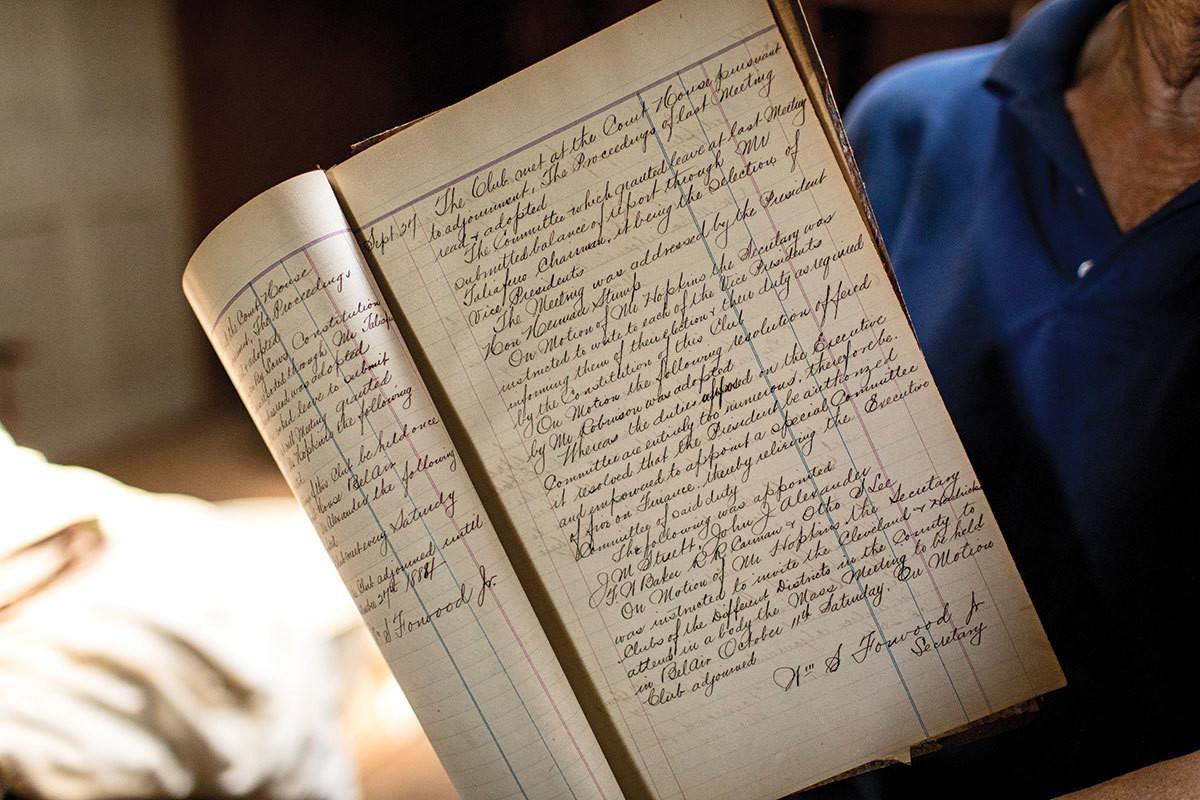 the Court House
The Proceedings
adopted
By Laws Constitution
through Mr
was adopted
leave to submit
Meeting granted
Hopkins the following
this Club be held once
House Bel Air
Alexander the following
meet every Saturday
Club adjourned until
27th 1884
S Forwood Jr.
Sept 27
The Club met at the Court House pursuant
to adjournment, The Proceedings of last Meeting
read & adopted
The Committee which granted leave at last Meeting
submitted balance of report through Mr
Taliaferro Chairman, it being the Selection of
Vice Presidents
The Meeting was addressed by the President
Hon Herman Stump
On Motion of Mr Hopkins the Secretary was
instructed to write to each of the Vice Presidents
informing them of their election & their duty as required
by the Constitution of this Club
On Motion the following resolution offered
by Mr Robinson was adopted
Whereas the duties imposed on the Executive
Committee are entirely too numerous, therefore be
it resolved that the President be authorized
and empowered to appoint a Special Committee
of five on Finance thereby relieving the Executive
Committee of said duty
The following was appointed
J M Streett, John J. Alexander
F W Baker R R Carman & Otho S Lee
On Motion of Mr Hopkins the Secretary
was instructed to invite the Cleveland & Hendricks
Clubs of the Different Districts in the County to
attend in a body the Mass Meeting to be held
in BelAir October 11th Saturday. On Motion
Club adjourned
Wm S Forwood Jr
Secretary